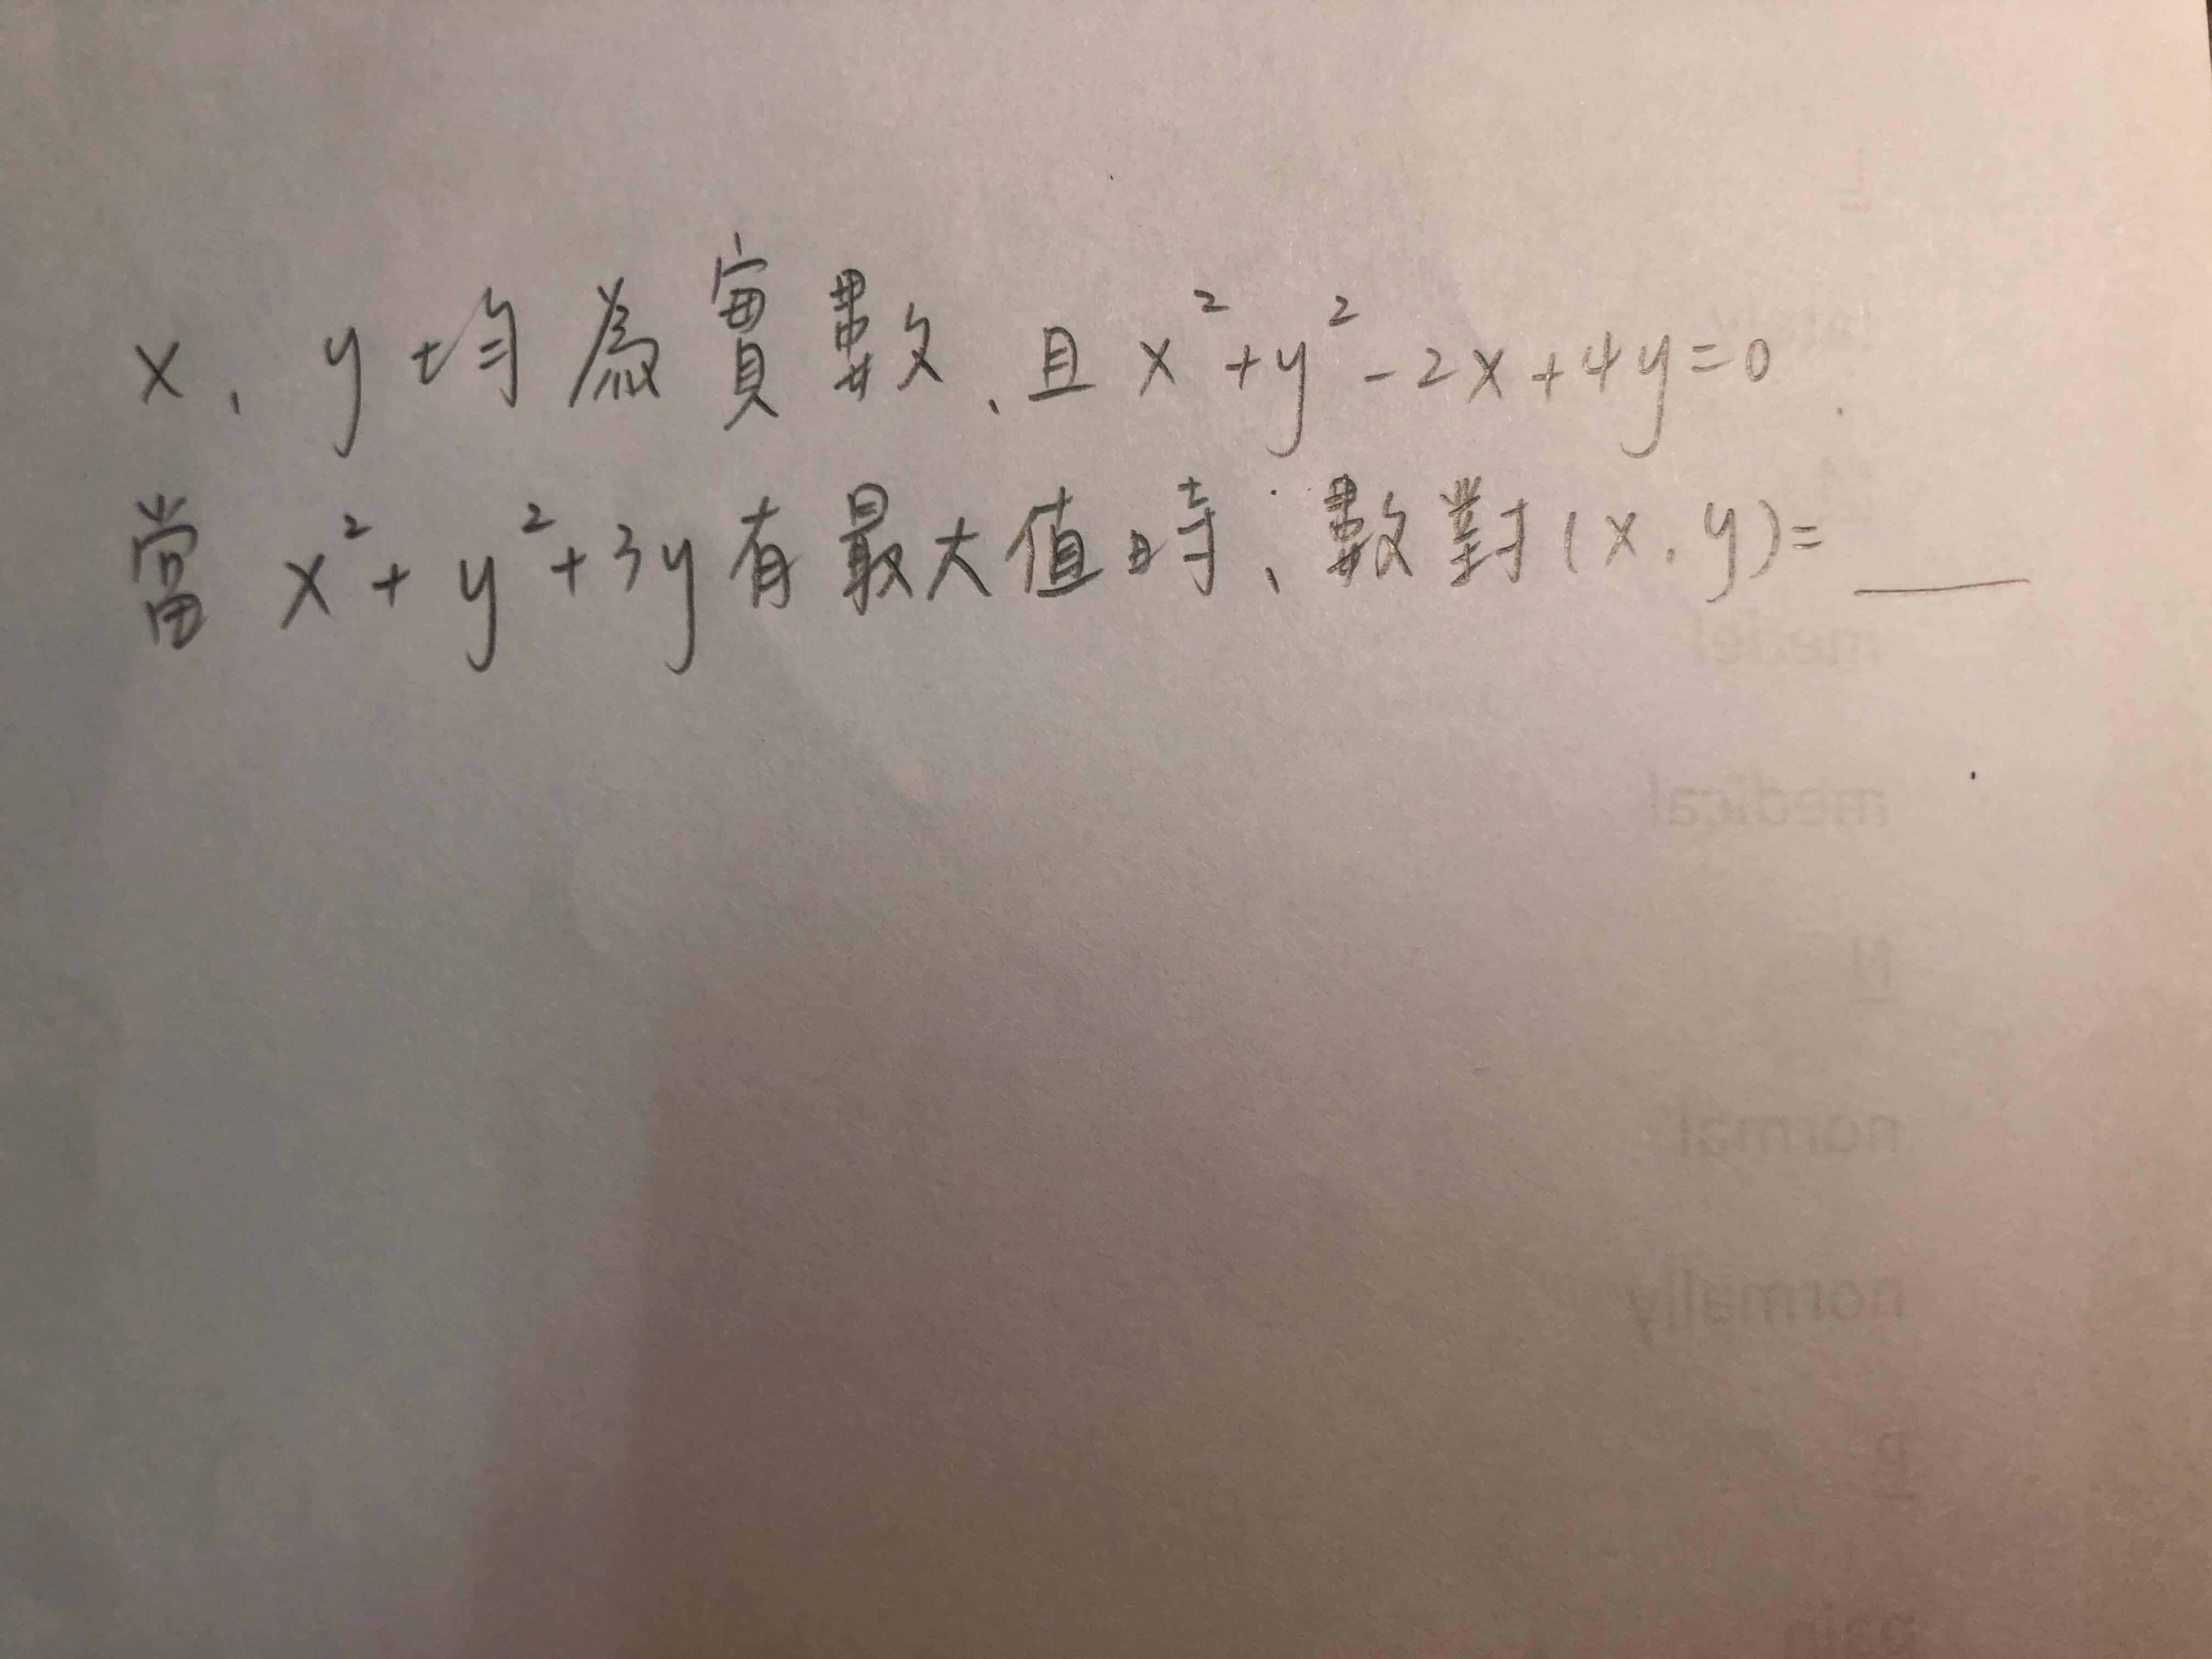 x、y均為實數、且x²+y²-2x+4y=0.
當x²+y²+3y有最大值時、數對(x,y)=____
medical
N
normal
normally
P
pain